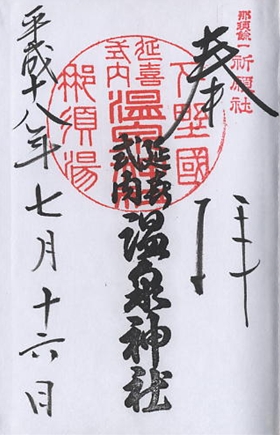 那須余一祈願社
奉拝
下野國
延喜式内
温泉神社
那須湯
延喜式内
温泉神社
平成十八年七月十六日